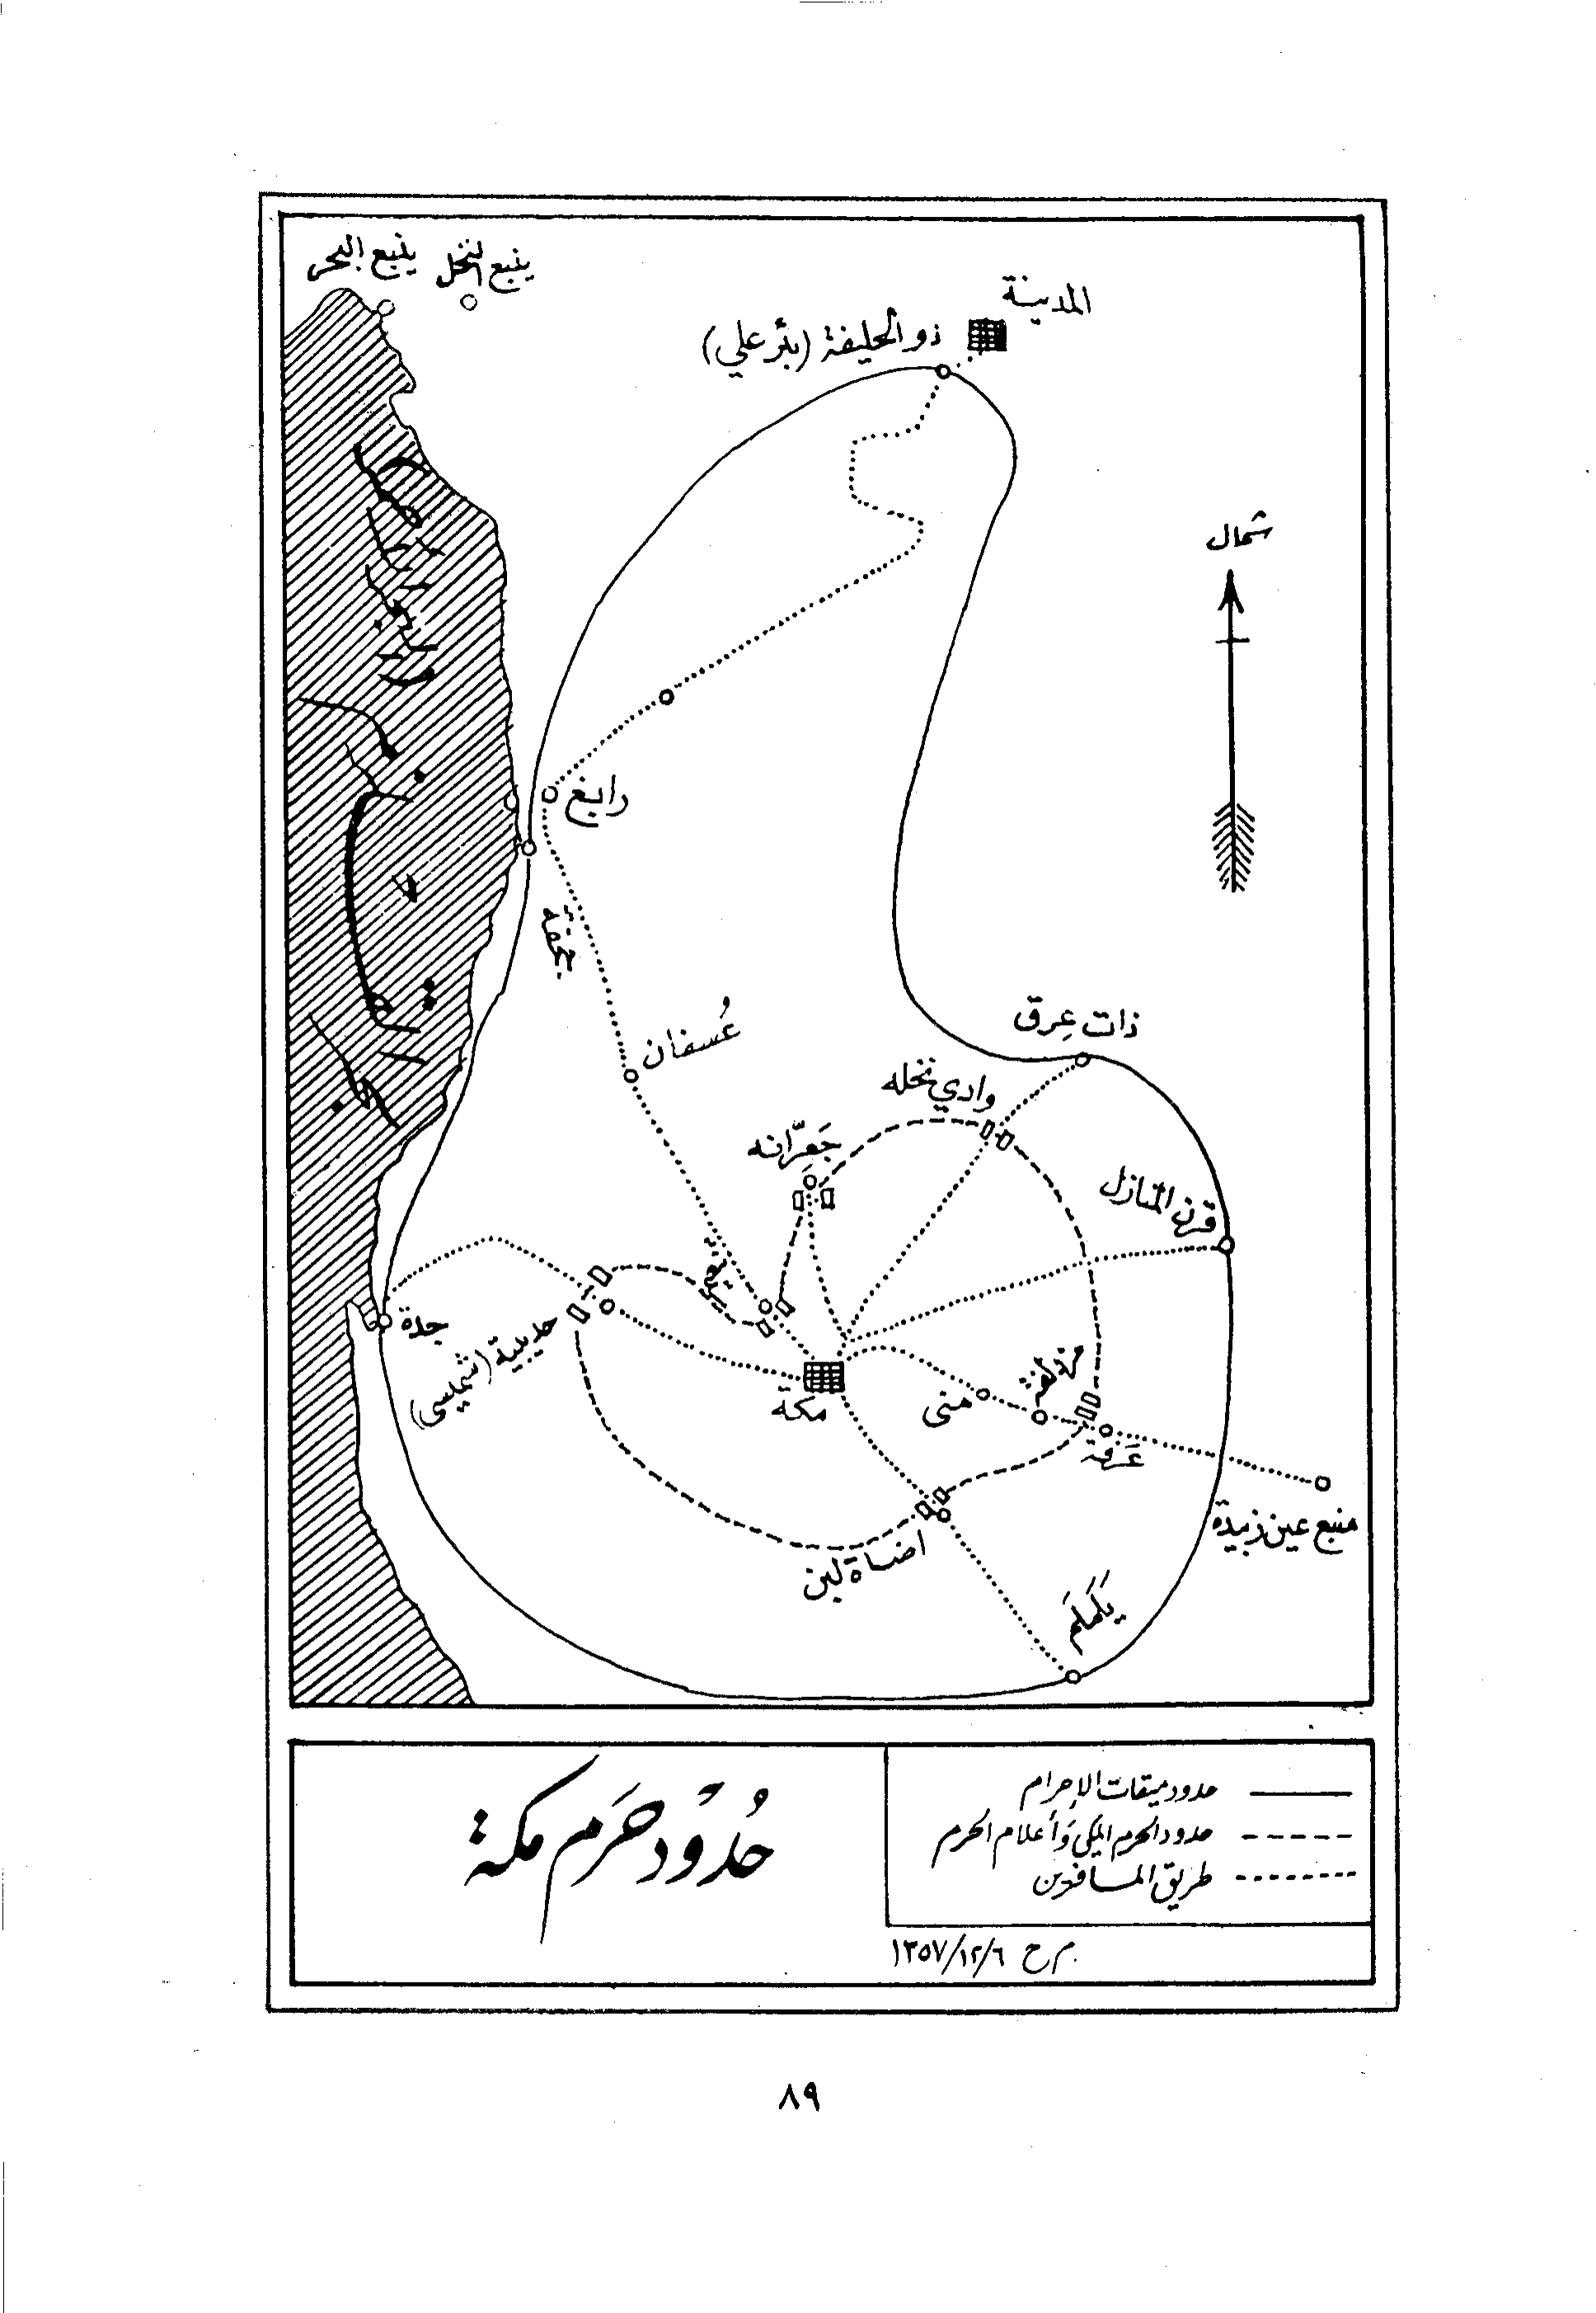 ينبع البحر
ينبع النخل
المدينة
ذو الحليفة (بئر علي)
شمال
رابغ
جحفة
عُسفان
ذات عِرق
وادي نخله
جَعِرّانه
قرن المنازل
جدة
حديبية (شميسي)
مكة
منى
مزدلفة
عَرفة
منبع عين زبيدة
اضاة لبن
يَلَملَم
حدود ميقات الإحرام
حدود الحرم المكي وَأعلام الحرم
طريق المسافرين
حُدُوْد حَرَم مكة
م ح ١٣٥٧/١٢/٦
٨٩